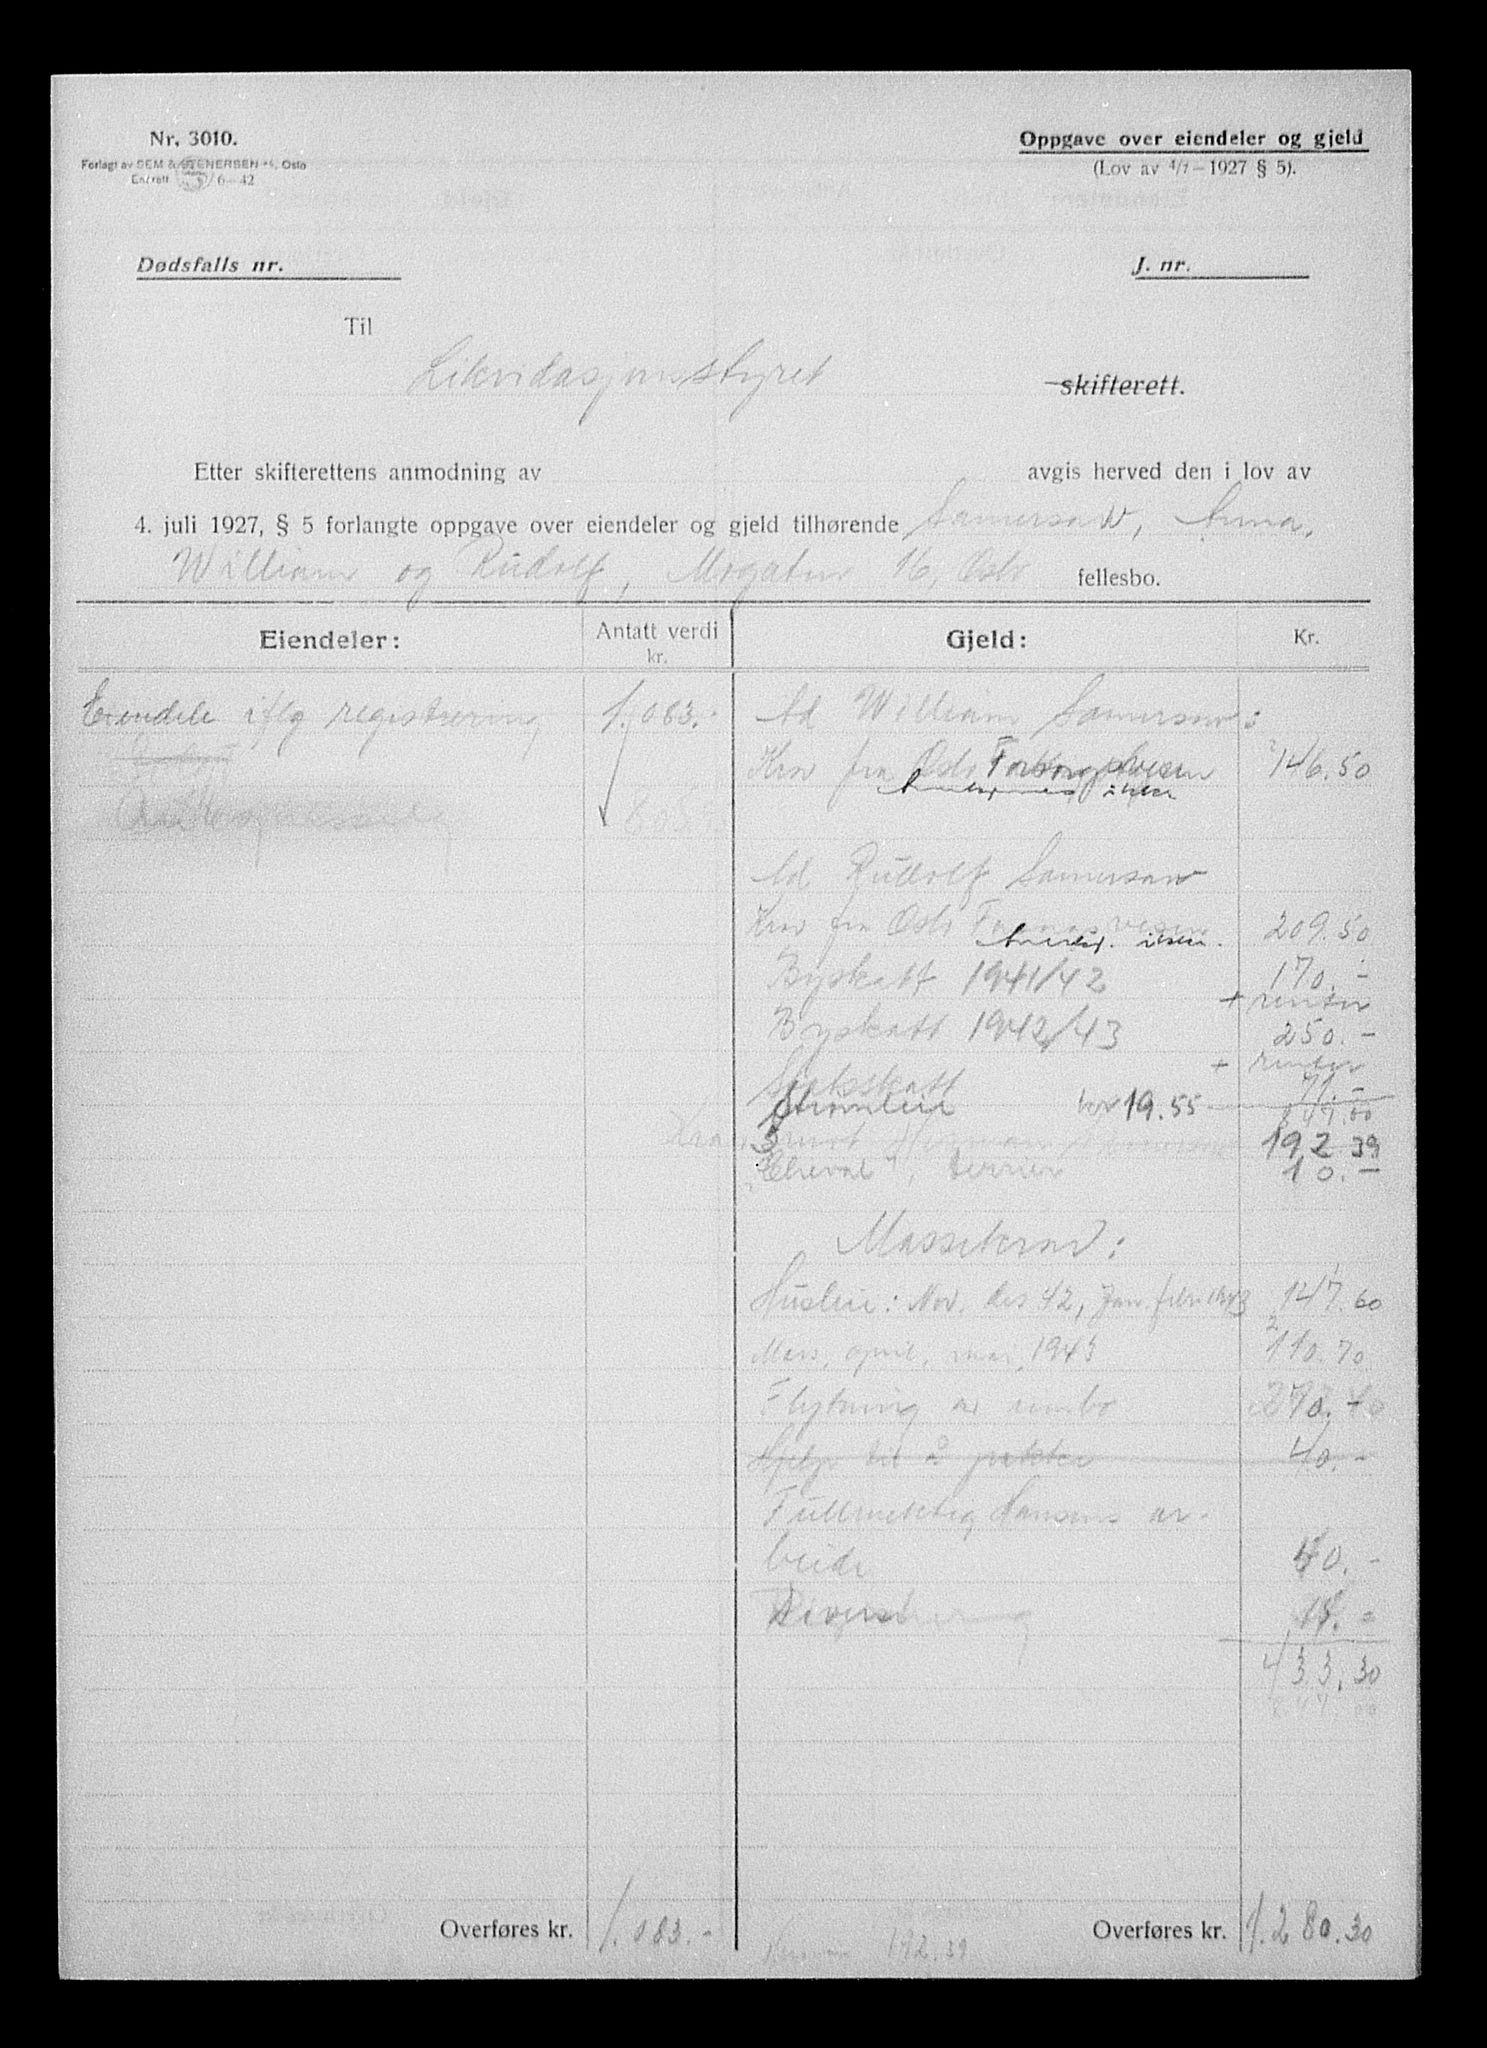 Nr. 3010.
Forlagt av SEM & STENERSEN A/S, Oslo
Enerett 6—42
Oppgave over eiendeler og gjeld
(Lov av 4/7 — 1927 § 5).
Dødsfalls nr.
J. nr.
Til
Likvidasjonsstyret skifterett.
Etter skifterettens anmodning av avgis herved den i lov av
4. juli 1927, § 5 forlangte oppgave over eiendeler og gjeld tilhørende Samersaw, Anna,
William og Rudolf, Mogatun 16, Oslo fellesbo.
Eiendeler: Antatt verdi kr. Gjeld: Kr.
Eiendele iflg registrering 1.083.-
Ad William Samersaw:
Krav fra Oslo 146.50
Ad Rudolf Samersaw
Krav fra Oslo 209.50
Byskatt 1941/42 170.-
+ renter
Byskatt 1942/43 250.-
+ renter
Statsskatt 71.-
Strømleie kr 19.55
192 39
"Cheval", terrier 10.-
Massekrav:
Husleie: Nov. des 42, Jan. febr 1943 147.60
Mars, april, mai, 1943 110.70
Flytning av innbo
Hjelp til å pakke 40.-
Fullmektig Hansens ar-
beide 40.-
Registrering
433.30
Overføres kr. 1.083.-
192.39
Overføres kr. 1.280.30